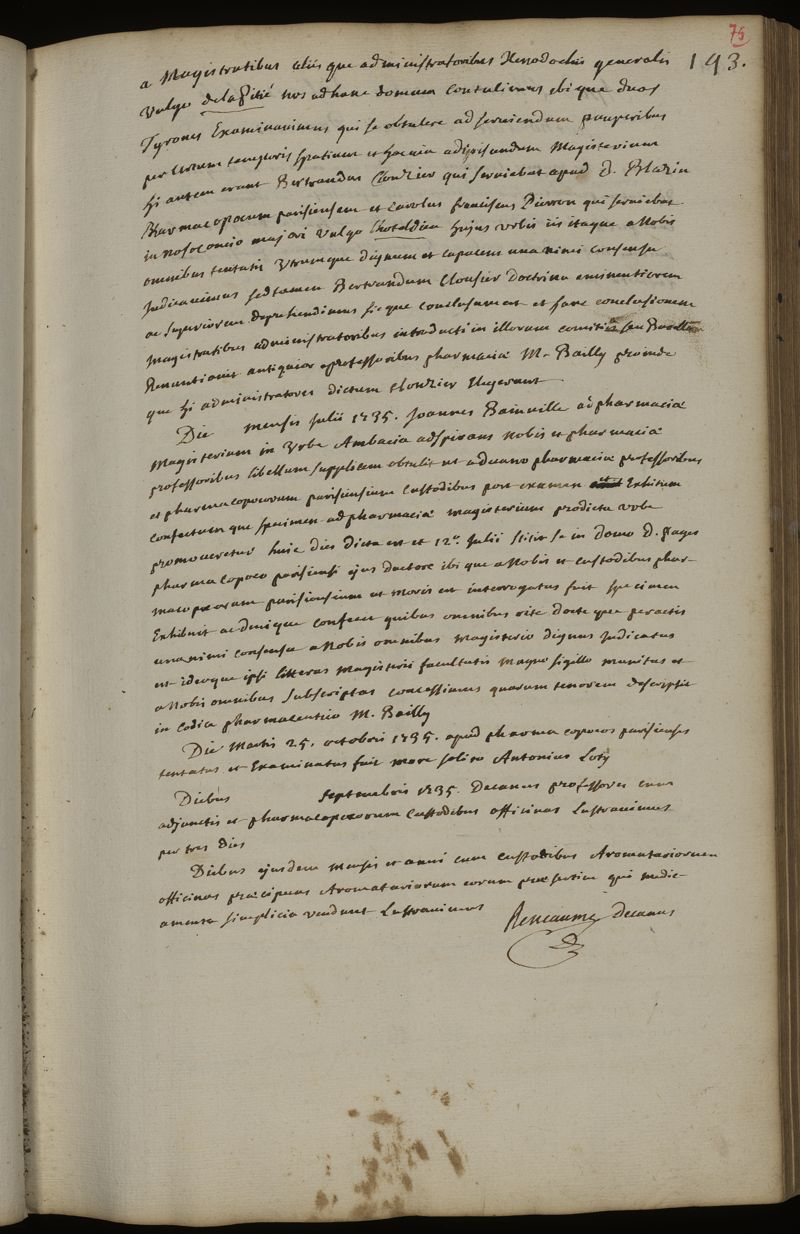 75
193.
a Magistratibus aliisque administratoribus Xenodochii generalis
vulgo de la Pitié nos ad hanc domum contulimus ibique duos
Tyrones Examinavimus qui se obtulere ad serviendum pauperibus
per certum temporis spatium et hac via adipiscendum Magisterium
hi autem erant Bertrandus Clouzier qui serviebat apud D. Bladin
Pharmacopoeum parisiensem et Carolus franciscus Pierron qui serviebat
in nosocomio majori vulgo L'hoteldieu hujus urbis iis itaque a Nobis
omnibus tentatis Utrumque dignum et capacem unanimi consensu
Judicavimus sed tamen Bertrandum Clousier doctrina eminentiorem
ac superiorem deprehendimus sicque conclusum est et hanc conclusionem
magistratibus administratoribus introducti in illorum comitia seu
Renuntiavit antiquior e professoribus pharmaciae M. Bailly proinde
que hi administratores dictum Clouzier Elegerunt
Die mensis Julii 1735. Joannes Bainville ad pharmaciae
Magisterium in Urbe Ambacia adspirans nobis et pharmaciae
professoribus libellum supplicem obtulit ut a decano pharmaciae professoribus
et pharmacopoeorum parisiensium Custodibus post examen Exhibitum
confectumque specimen ad pharmaciae magisterium praedicta urbe
promoveretur huic dies dicta est et 12a. Julii stitit se in domo D. pages
pharmacopoeo parisiensi ejus ductore ibique a Nobis et custodibus phar-
macopoeorum parisiensium ut moris est interrogatus fuit specimen
Exhibuit ac denique confecit quibus omnibus rite docteque peractis
unanimi consensu a Nobis omnibus Magisterio dignus Judicatus
est ideoque ipsi litteras Magisterii facultatis magno sigillo munitas et
a Nobis omnibus Subscriptas concessimus quarum tenorem descripsit
in codice pharmaceutico M. Bailly
Die Martis 25. octobris 1735. apud pharmacopoeos parisienses
tentatus et Examinatus fuit more solito Antonius Lory
Diebus Septembris 1735. Decanus professores cum
adjunctis et pharmacopoeorum Custodibus officinas Lustravimus
per tres dies
Diebus ejusdem mensis et anni cum custodibus Aromatariorum
officinas praecipuas Aromatariorum eorum praesertim qui medic-
amenta simplicia vendunt Lustravimus
Reneaume Decanus